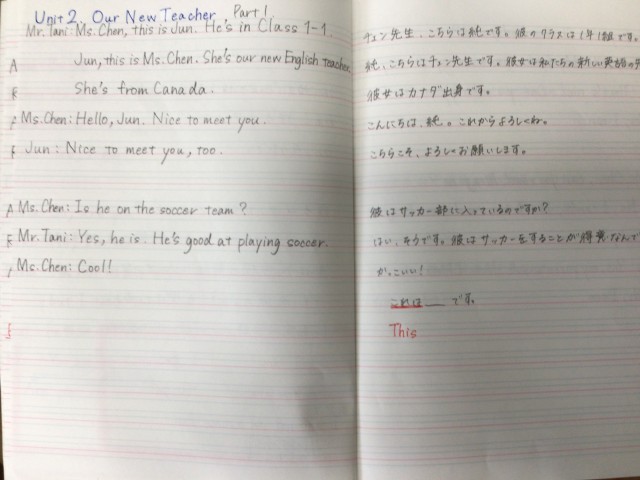 Unit 2. Our New Teacher Part 1
Mr. Tani: Ms. Chen, this is Jun. He's in Class 1-1.
Jun, this is Ms. Chen. She's our new English teacher.
She's from Canada.
Ms. Chen: Hello, Jun. Nice to meet you.
Jun: Nice to meet you, too.
Ms. Chen: Is he on the soccer team?
Mr. Tani: Yes, he is. He's good at playing soccer.
Ms. Chen: Cool!
チェン先生、こちらは純です。彼のクラスは1年1組です。
純、こちらはチェン先生です。彼女は私たちの新しい英語の
彼女はカナダ出身です。
こんにちは、純。これからよろしくね。
こちらこそ、よろしくお願いします。
彼はサッカー部に入っているのですか?
はい、そうです。彼はサッカーをすることが得意なんで
かっこいい!
これは__です。
This